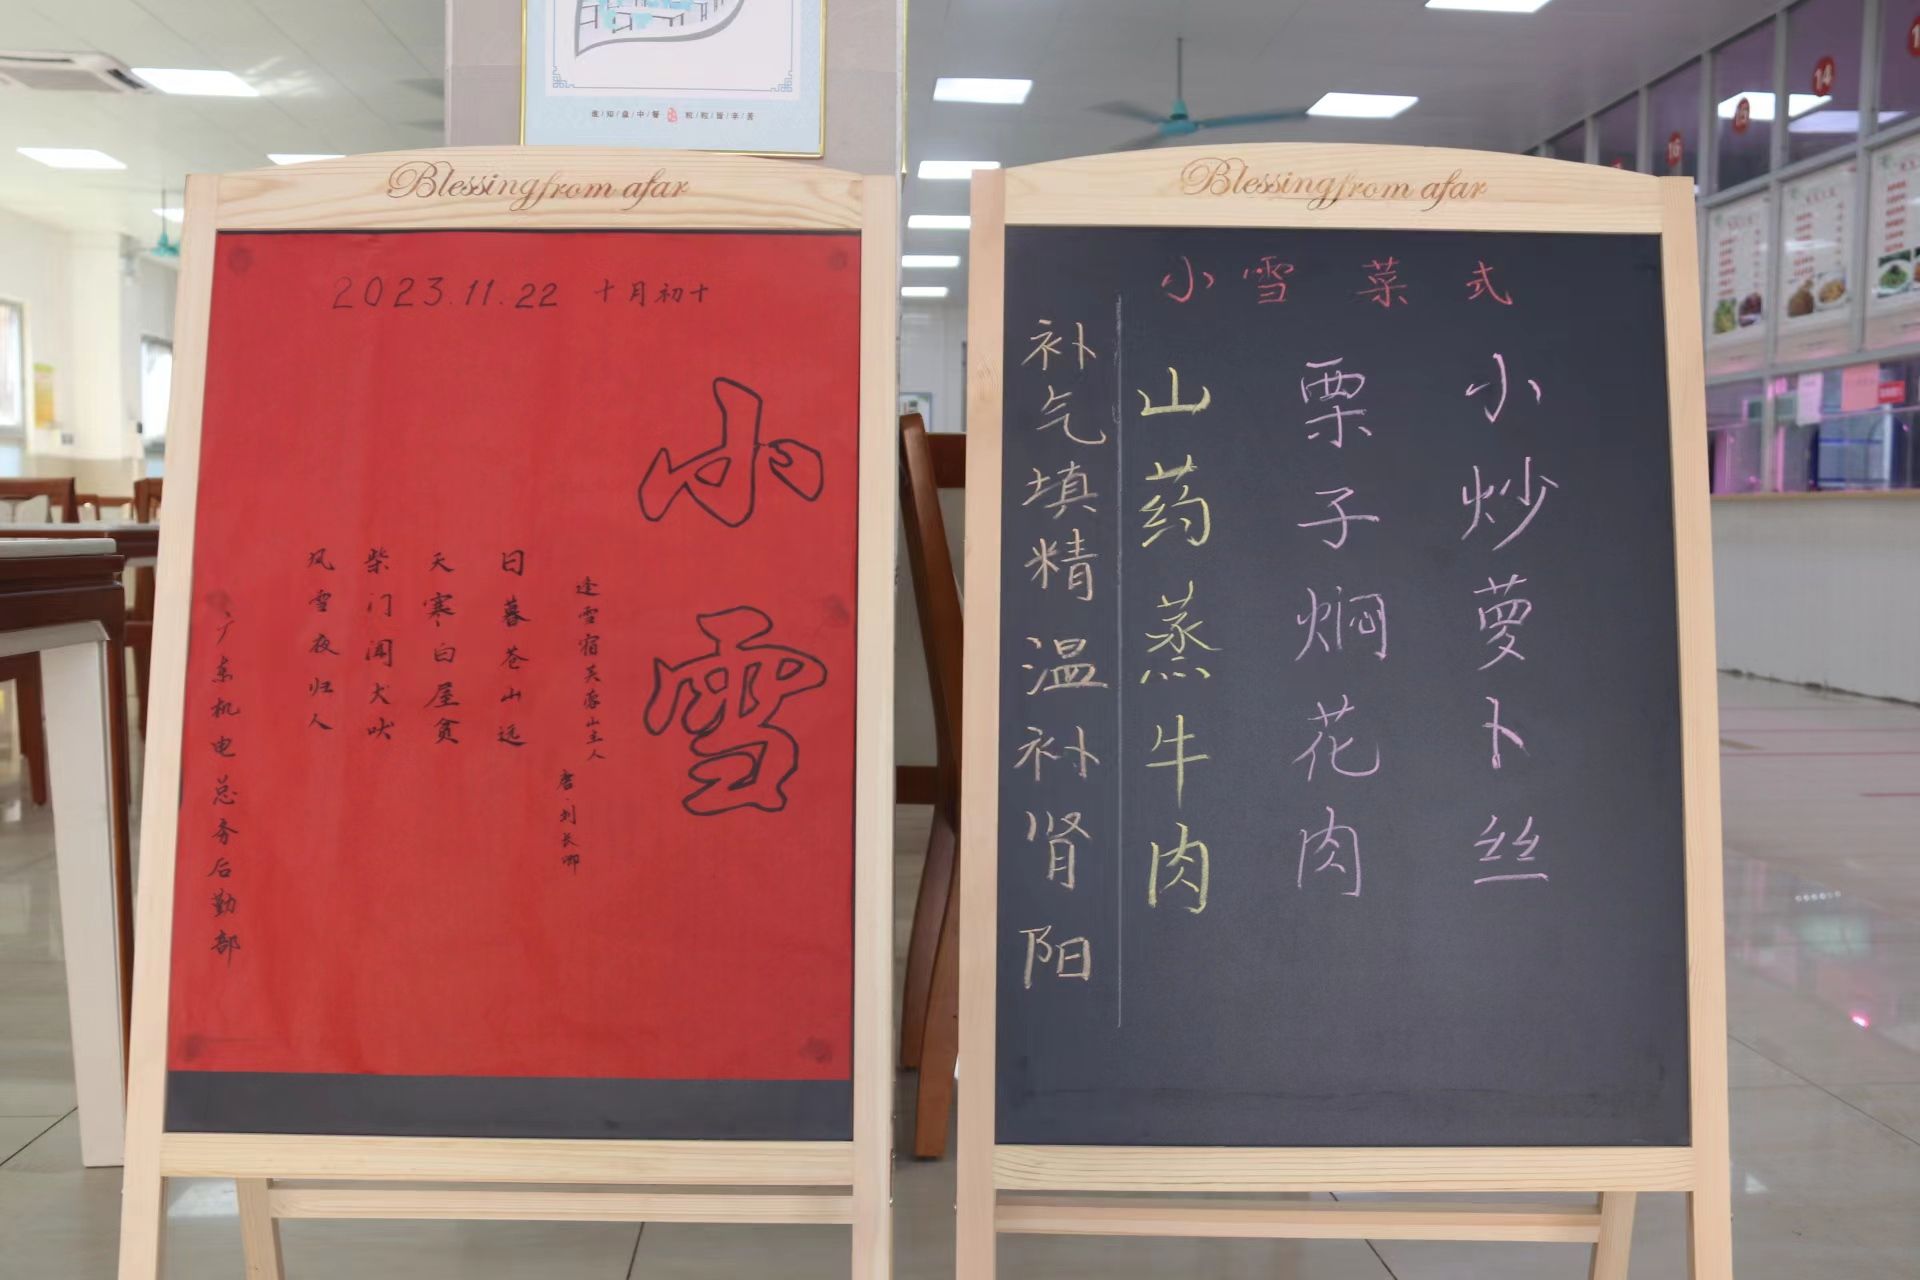 谁/知/盘/中/餐 粒/粒/皆/辛/苦
Blessing from afar
2023.11.22 十月初十
小雪
逢雪宿芙蓉山主人
唐·刘长卿
日暮苍山远
天寒白屋贫
柴门闻犬吠
风雪夜归人
广东机电总务后勤部
Blessing from afar
小雪菜式
小炒萝卜丝
栗子焖花肉
山药蒸牛肉
补气填精温补肾阳
14
15
16